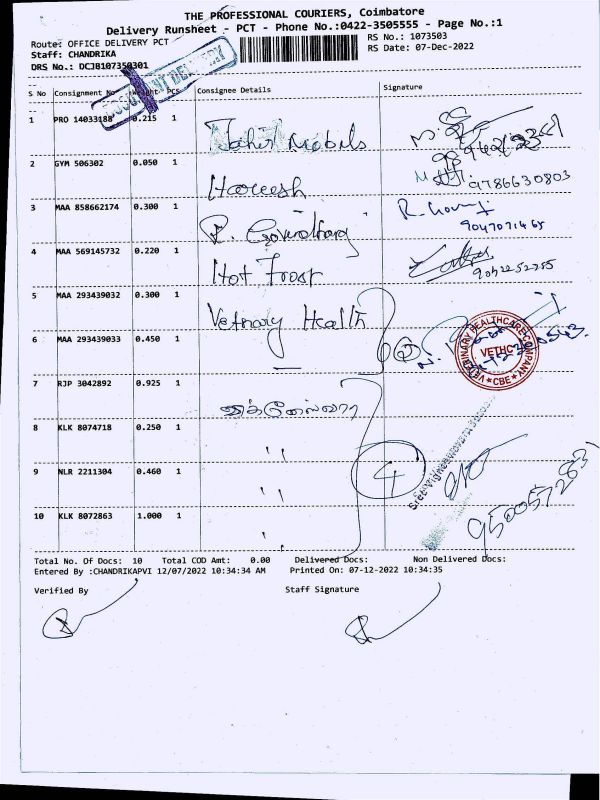 THE PROFESSIONAL COURIERS, Coimbatore
Delivery Runsheet - PCT - Phone No.:0422-3505555 - Page No.:1
Route: OFFICE DELIVERY PCT RS No.: 1073503
Staff: CHANDRIKA RS Date: 07-Dec-2022
DRS No.: DCJB107350301
S No Consignment No Weight Pcs Consignee Details Signature
1 PRO 14033188 0.215 1
2 GYM 506302 0.050 1 Hareesh 9786630803
3 MAA 858662174 0.300 1 9047071465
4 MAA 569145732 0.220 1 Hot Frost
5 MAA 293439032 0.300 1 Vetnary Health
VETERINARY HEALTHCARE COMPANY
VETHC
CBE
6 MAA 293439033 0.450 1
7 RJP 3042892 0.925 1
8 KLK 8074718 0.250 1 "
4
9 NLR 2211304 0.460 1 "
10 KLK 8072863 1.000 1 "
Total No. Of Docs: 10 Total COD Amt: 0.00 Delivered Docs: Non Delivered Docs:
Entered By :CHANDRIKAPVI 12/07/2022 10:34:34 AM Printed On: 07-12-2022 10:34:35
Verified By Staff Signature